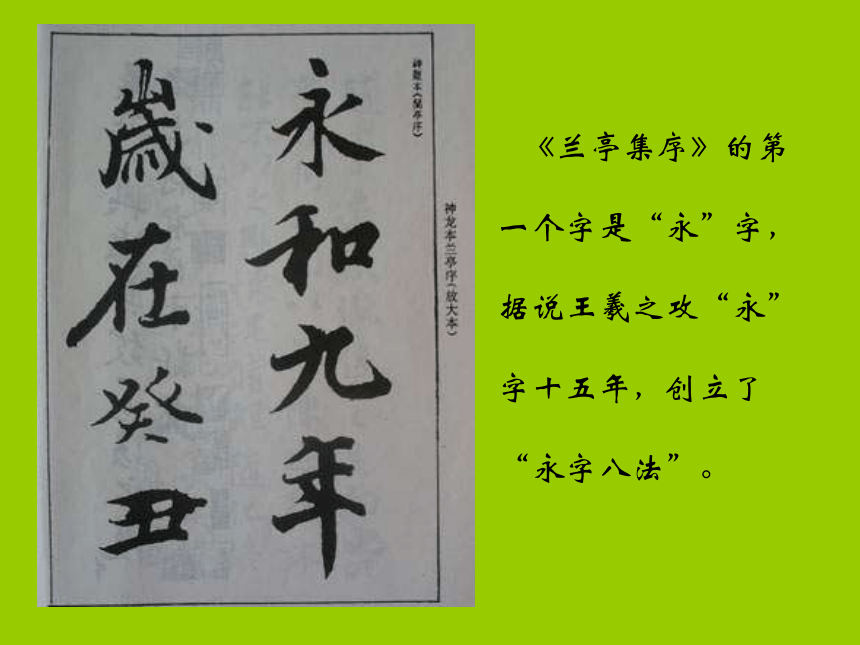 永和九年
歲在癸丑
神龍本《蘭亭序》
神龙本兰亭序(放大本)
《兰亭集序》的第
一个字是“永”字，
据说王羲之攻“永”
字十五年，创立了
“永字八法”。